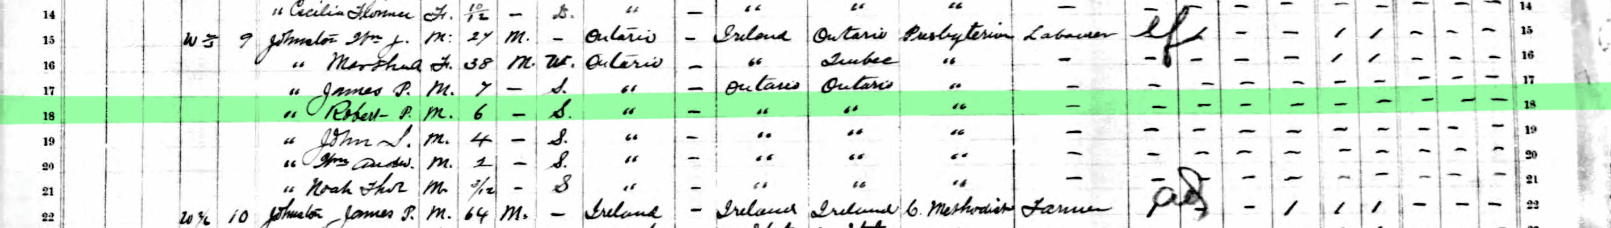 14 " Cecilia F. 10/12 — S. " — " " " — 14
15 9 Johnston Wm J. M. 27 M. — Ontario — Ireland Ontario Presbyterian Labourer — — 1 1 — — — 15
16 " F. 38 M. W. Ontario — " Quebec " — — — 1 1 — — — 16
17 " James P. M. 7 — S. " — Ontario Ontario " — — — — — — — — — 17
18 " Robert P. M. 6 — S. " — " " " — — — — — — — — — 18
19 " John S. M. 4 — S. " — " " " — — — — — — — — — 19
20 " Wm Andw. M. 2 — S. " — " " " — — — — — — — — — 20
21 " Noah M. /12 — S " — " " " — — — — — — — — — 21
22 10 Johnston James P. M. 64 M. — Ireland — Ireland Ireland C. Methodist Farmer — — 1 1 1 — — — 22